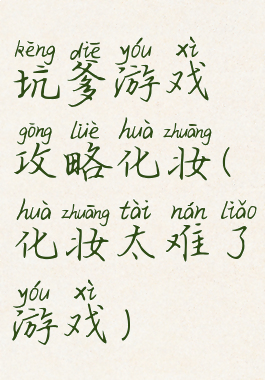 kēng diē yóu xì
坑爹游戏
gōng lüè huà zhuāng
攻略化妆(
huà zhuāng tài nán liǎo
化妆太难了
yóu xì
游戏)